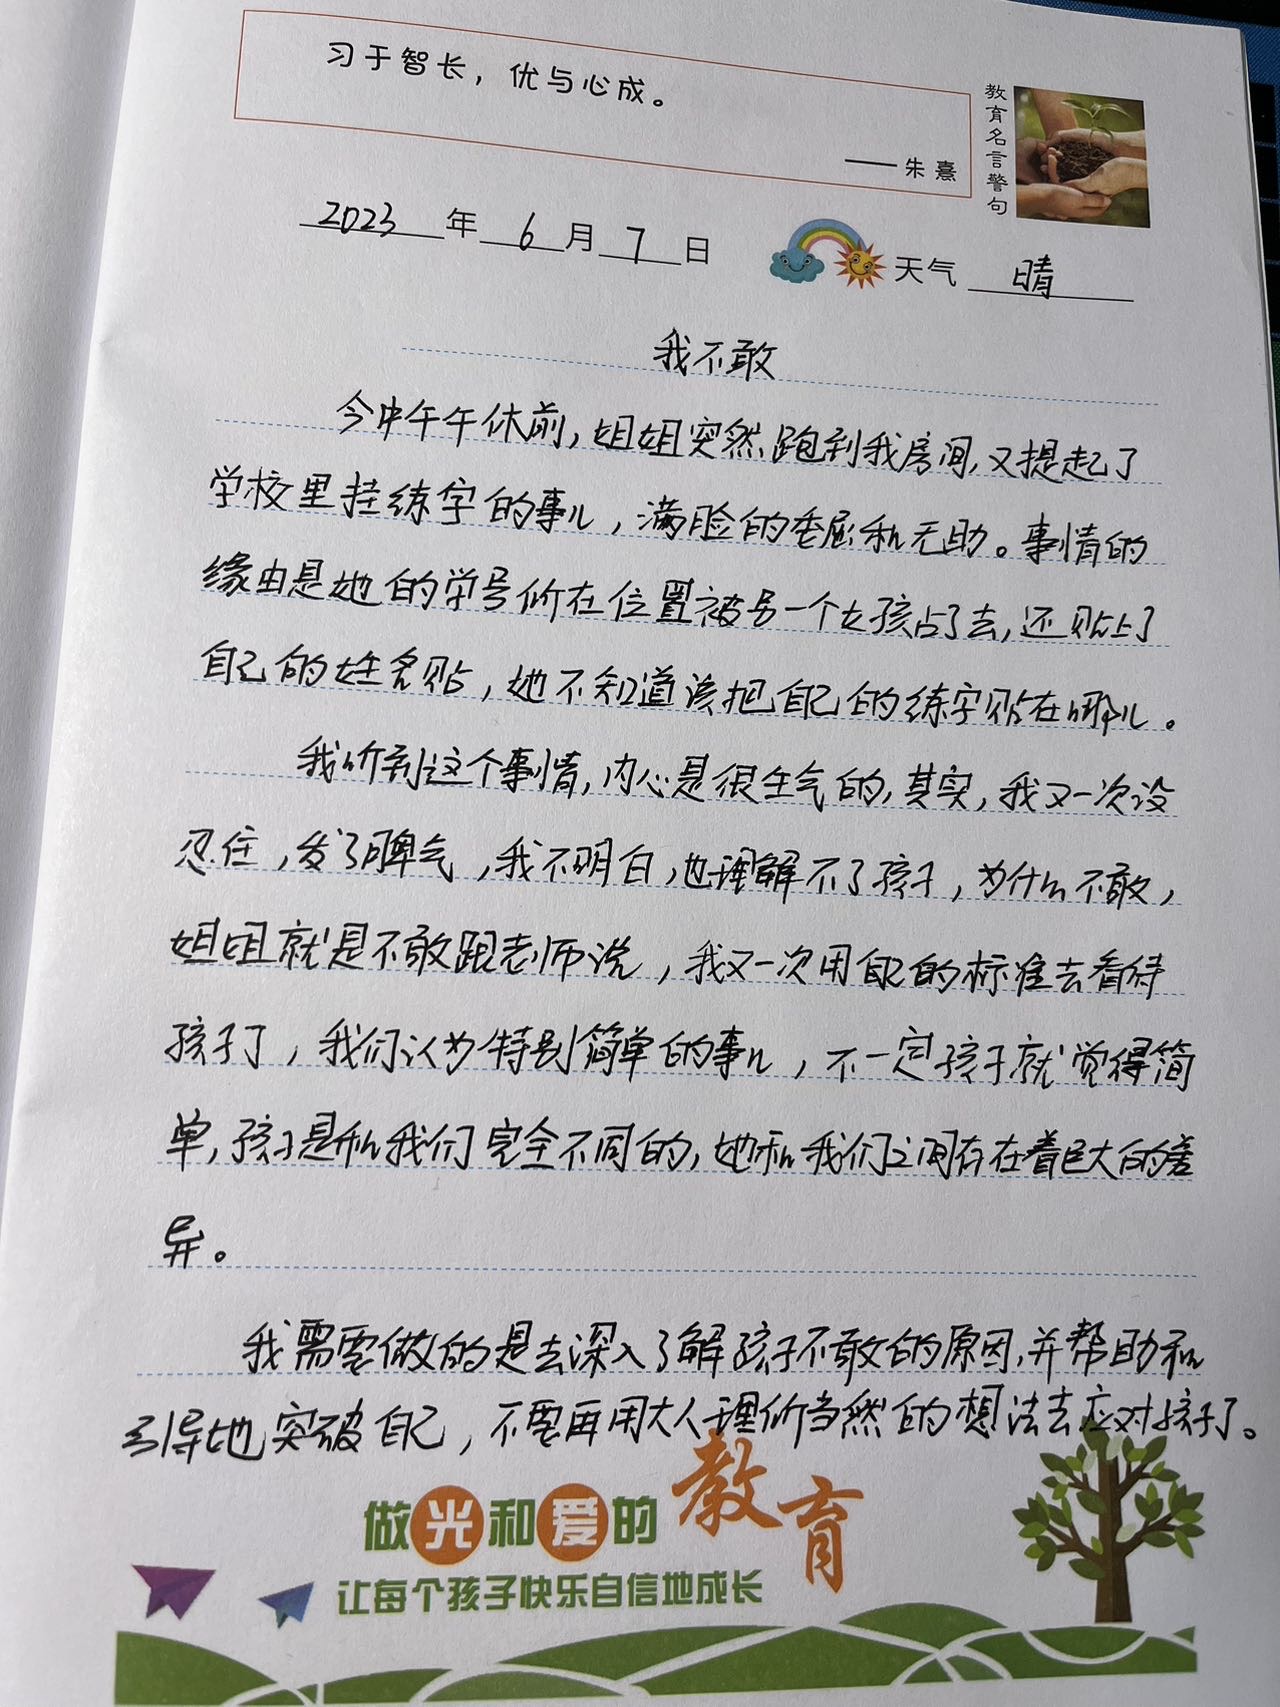 习于智长，优与心成。
——朱熹
教育名言警句
2023年6月7日
天气 晴
我不敢
今中午午休前，姐姐突然跑到我房间，又提起了
学校里挂练字的事儿，满脸的委屈和无助。事情的
缘由是她的学号所在位置被另一个女孩占了去，还贴上了
自己的姓名贴，她不知道该把自己的练字贴在哪儿。
我听到这个事情，内心是很生气的，其实，我又一次没
忍住，发了脾气，我不明白，也理解不了孩子，为什么不敢，
姐姐就是不敢跟老师说，我又一次用自己的标准去看待
孩子了，我们认为特别简单的事儿，不一定孩子就觉得简
单，孩子是和我们完全不同的，她和我们之间存在着巨大的差
异。
我需要做的是去深入了解孩子不敢的原因，并帮助和
引导她突破自己，不要再用大人理所当然的想法去应对孩子了。
做光和爱的教育
让每个孩子快乐自信地成长